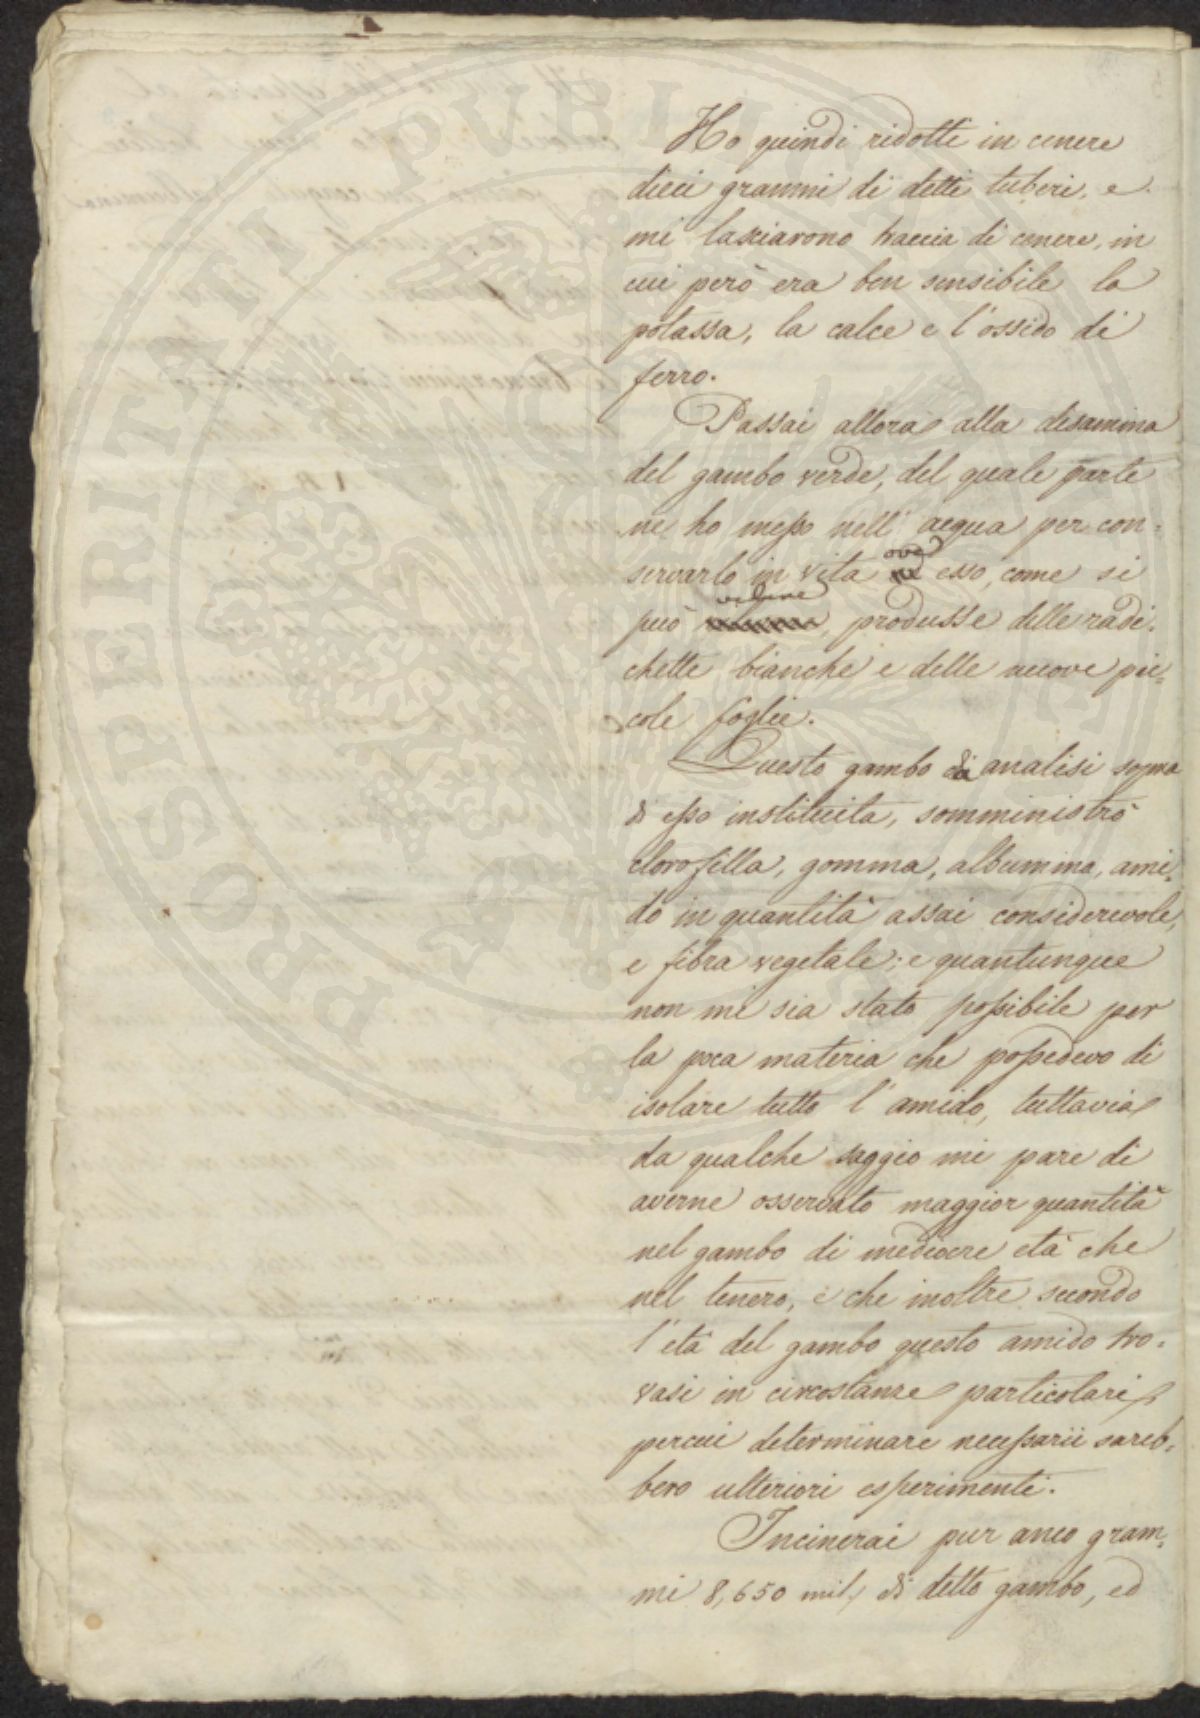 Ho quindi ridotti in cenere
dieci grammi di detti tuberi, e
mi lasciarono traccia di cenere, in
cui però era ben sensibile la
potassa, la calce e l'ossido di
ferro.
Passai allora alla disamina
del gambo verde, del quale parte
ne ho messo nell'acqua per con-
servarlo in vita ove esso, come si
può vedere, produsse delle radi-
chette bianche e delle nuove pic-
cole foglie.
Questo gambo di analisi sopra
di esso instituita, somministrò
clorofilla, gomma, albumina, ami-
do in quantità assai considerevole,
e fibra vegetale; e quantunque
non mi sia stato possibile per
la poca materia che possedevo di
isolare tutto l'amido, tuttavia
da qualche saggio mi pare di
averne osservato maggior quantità
nel gambo di mediocre età che
nel tenero, e che inoltre secondo
l'età del gambo questo amido tro-
vasi in circostanze particolari,
percui determinare necessarii sareb-
bero ulteriori esperimenti.
Incinerai pur anco gram-
mi 8,650 mil. di detto gambo, ed
PROSPERITATI PUBLICAE